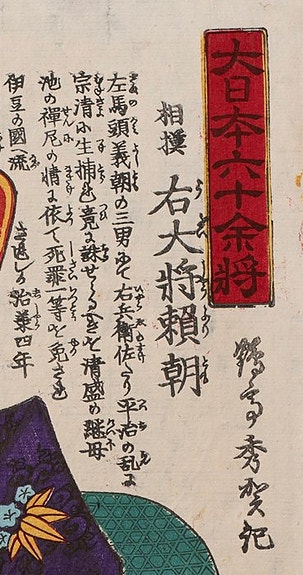 大日本六十余将
相摸
右大将頼朝
左馬頭義朝の三男にて右兵衛佐たり平治の乱に
宗清に生捕れ竟に誅せらるべきを清盛の継母
池の禅尼の情に依て死罪一等を免され
伊豆の國へ流
治承四年
鶴亭秀賀記